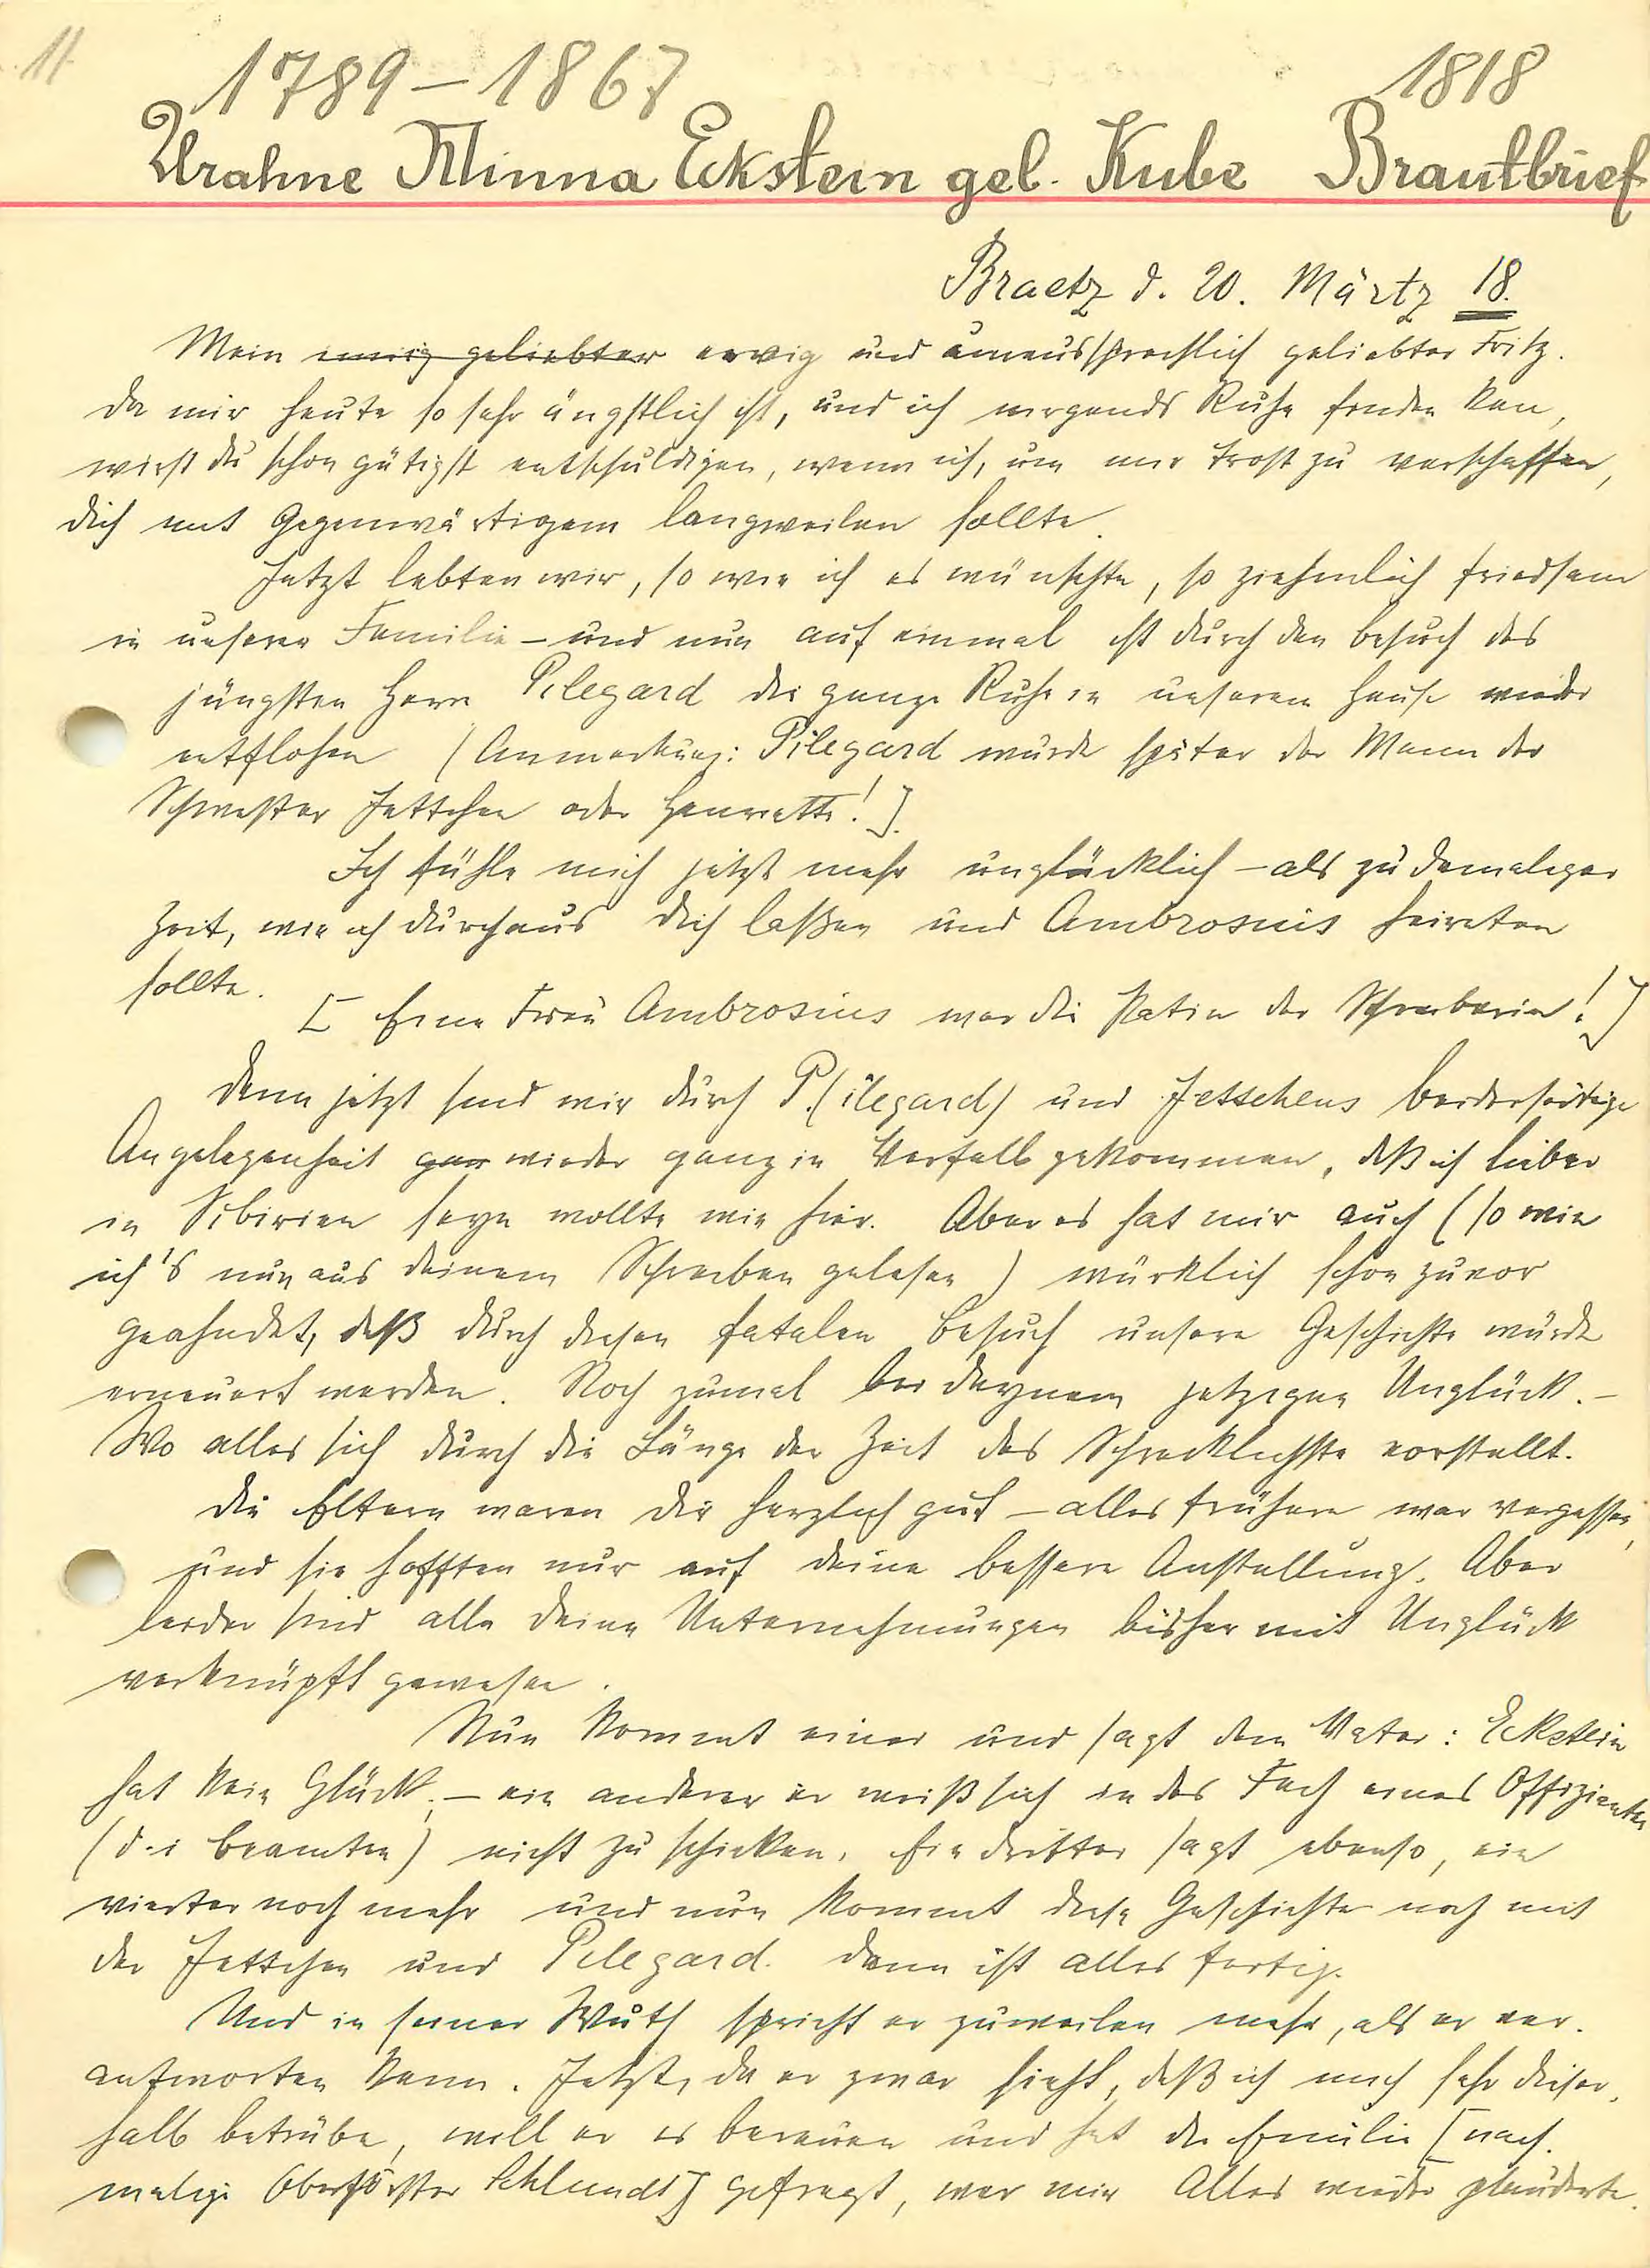 11
1789–1867 1818
Urahne Minna Eckstein geb. Kube Brautbrief
Braetz d. 20. Märtz 18.
Mein innig geliebter ewig und unaussprechlich geliebter Fritz.
Da mir heute so sehr ängstlich ist, und ich nirgends Ruhe finden kan,
wirst du schon gütigst entschuldigen, wenn ich, um mir Trost zu verschaffen,
dich mit Gegenwärtigem langweilen sollte.
Jetzt lebten wir, so wie ich es wünschte, so ziehmlich friedsam
in unserer Familie – und nun auf einmal ist durch den Besuch des
jüngsten Herrn Pilegard die ganze Ruhe in unserem Hause wieder
entflohen (Anmerkung: Pilegard wurde später der Mann der
Schwester Jettchen oder Henriette!].
Ich fühle mich jetzt mehr unglücklich – als zu damaliger
Zeit, wie ich durchaus dich laßen und Ambrosius heiraten
sollte. [Eine Frau Ambrosius war die Patin der Schreiberin!]
Denn jetzt sind wir durch P.(ilegard) und Jettchens beiderseitige
Angelegenheit gar wieder ganz in Verfall gekommen, daß ich lieber
in Sibirien seyn wollte wie hier. Aber es hat mir auch (so wie
ich's nun aus deinem Schreiben gelesen) würklich schon zuvor
geahndet, daß durch diesen fatalen Besuch unsere Geschichte würde
erneuert werden. Noch zumal bei deynem jetzigen Unglück. –
Wo alles sich durch die Länge der Zeit das Schrecklichste vorstellt.
Die Eltern waren dir herzlich gut – alles frühere war vergessen,
und sie hofften nur auf deine bessere Anstellung. Aber
leider sind alle deine Unternehmungen bisher mit Unglück
verknüpft gewesen.
Nun kommt einer und sagt dem Vater: Eckstein
hat kein Glück. – ein anderer er weiß sich in das Fach eines Offizianten
(d.i Beamten) nicht zu schicken, Ein dritter sagt ebenso, ein
vierter noch mehr und nun kommt diese Geschichte noch mit
der Jettchen und Pilegard. Dann ist alles fertig.
Und in seiner Wuth spricht er zuweilen mehr, als er ver-
antworten kann. Jetzt, da er zwar sieht, daß ich mich sehr dieser-
halb betrübe, will er es bereuen und hat die Emilie [nach-
malige Oberförster Schlundt] gefragt, wer mir Alles wieder plauderte.